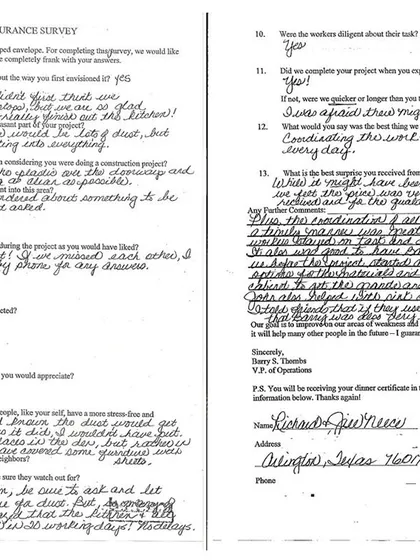 URANCE SURVEY
ped envelope. For completing this survey, we would like
e completely frank with your answers.
out the way you first envisioned it? yes
didn't first think we
tops, but we are so glad
really finish out the kitchen!
easant part of your project?
would be lots of dust, but
ting into everything.
n considering you were doing a construction project?
he plastic over the doorway and
g as clean as possible.
ent into this area?
ndered about something to be
d asked.
during the project as you would have liked?
! If we missed each other, I
y phone for any answers.
cted?
you would appreciate?
eople, like your self, have a more stress-free and
d known the dust would get
as it did, I wouldn't have put
aces in the den, but rather
ave covered some furniture with
sheets.
neighbors?
e sure they watch out for?
n, be sure to ask and let
e for dust. But,
that the kitchen &
in 20 working days! No delays.
10. Were the workers diligent about their task?
Yes
11. Did we complete your project when you exp
Yes!
If not, were we quicker or longer than you t
I was afraid there mig
12. What would you say was the best thing we
Coordinating the work
every day.
13. What is the best surprise you received from
While it might have bee
we felt the price was ver
received and for the qual
Any Further Comments:
Plus, the coordination of all
a timely manner was great
workers stayed on task and c
It also was good to have Ba
us before the project started
options for the materials and
cabinet to get the granite and
John also helped with sink
I told friends that if they use
that Barry was also very
Our goal is to improve on our areas of weakness and
it will help many other people in the future – I guaran
Sincerely,
Barry S. Thombs
V.P. of Operations
P.S. You will be receiving your dinner certificate in t
information below. Thanks again!
Name Richard & Jill Neece
Address
Arlington, Texas 7601
Phone